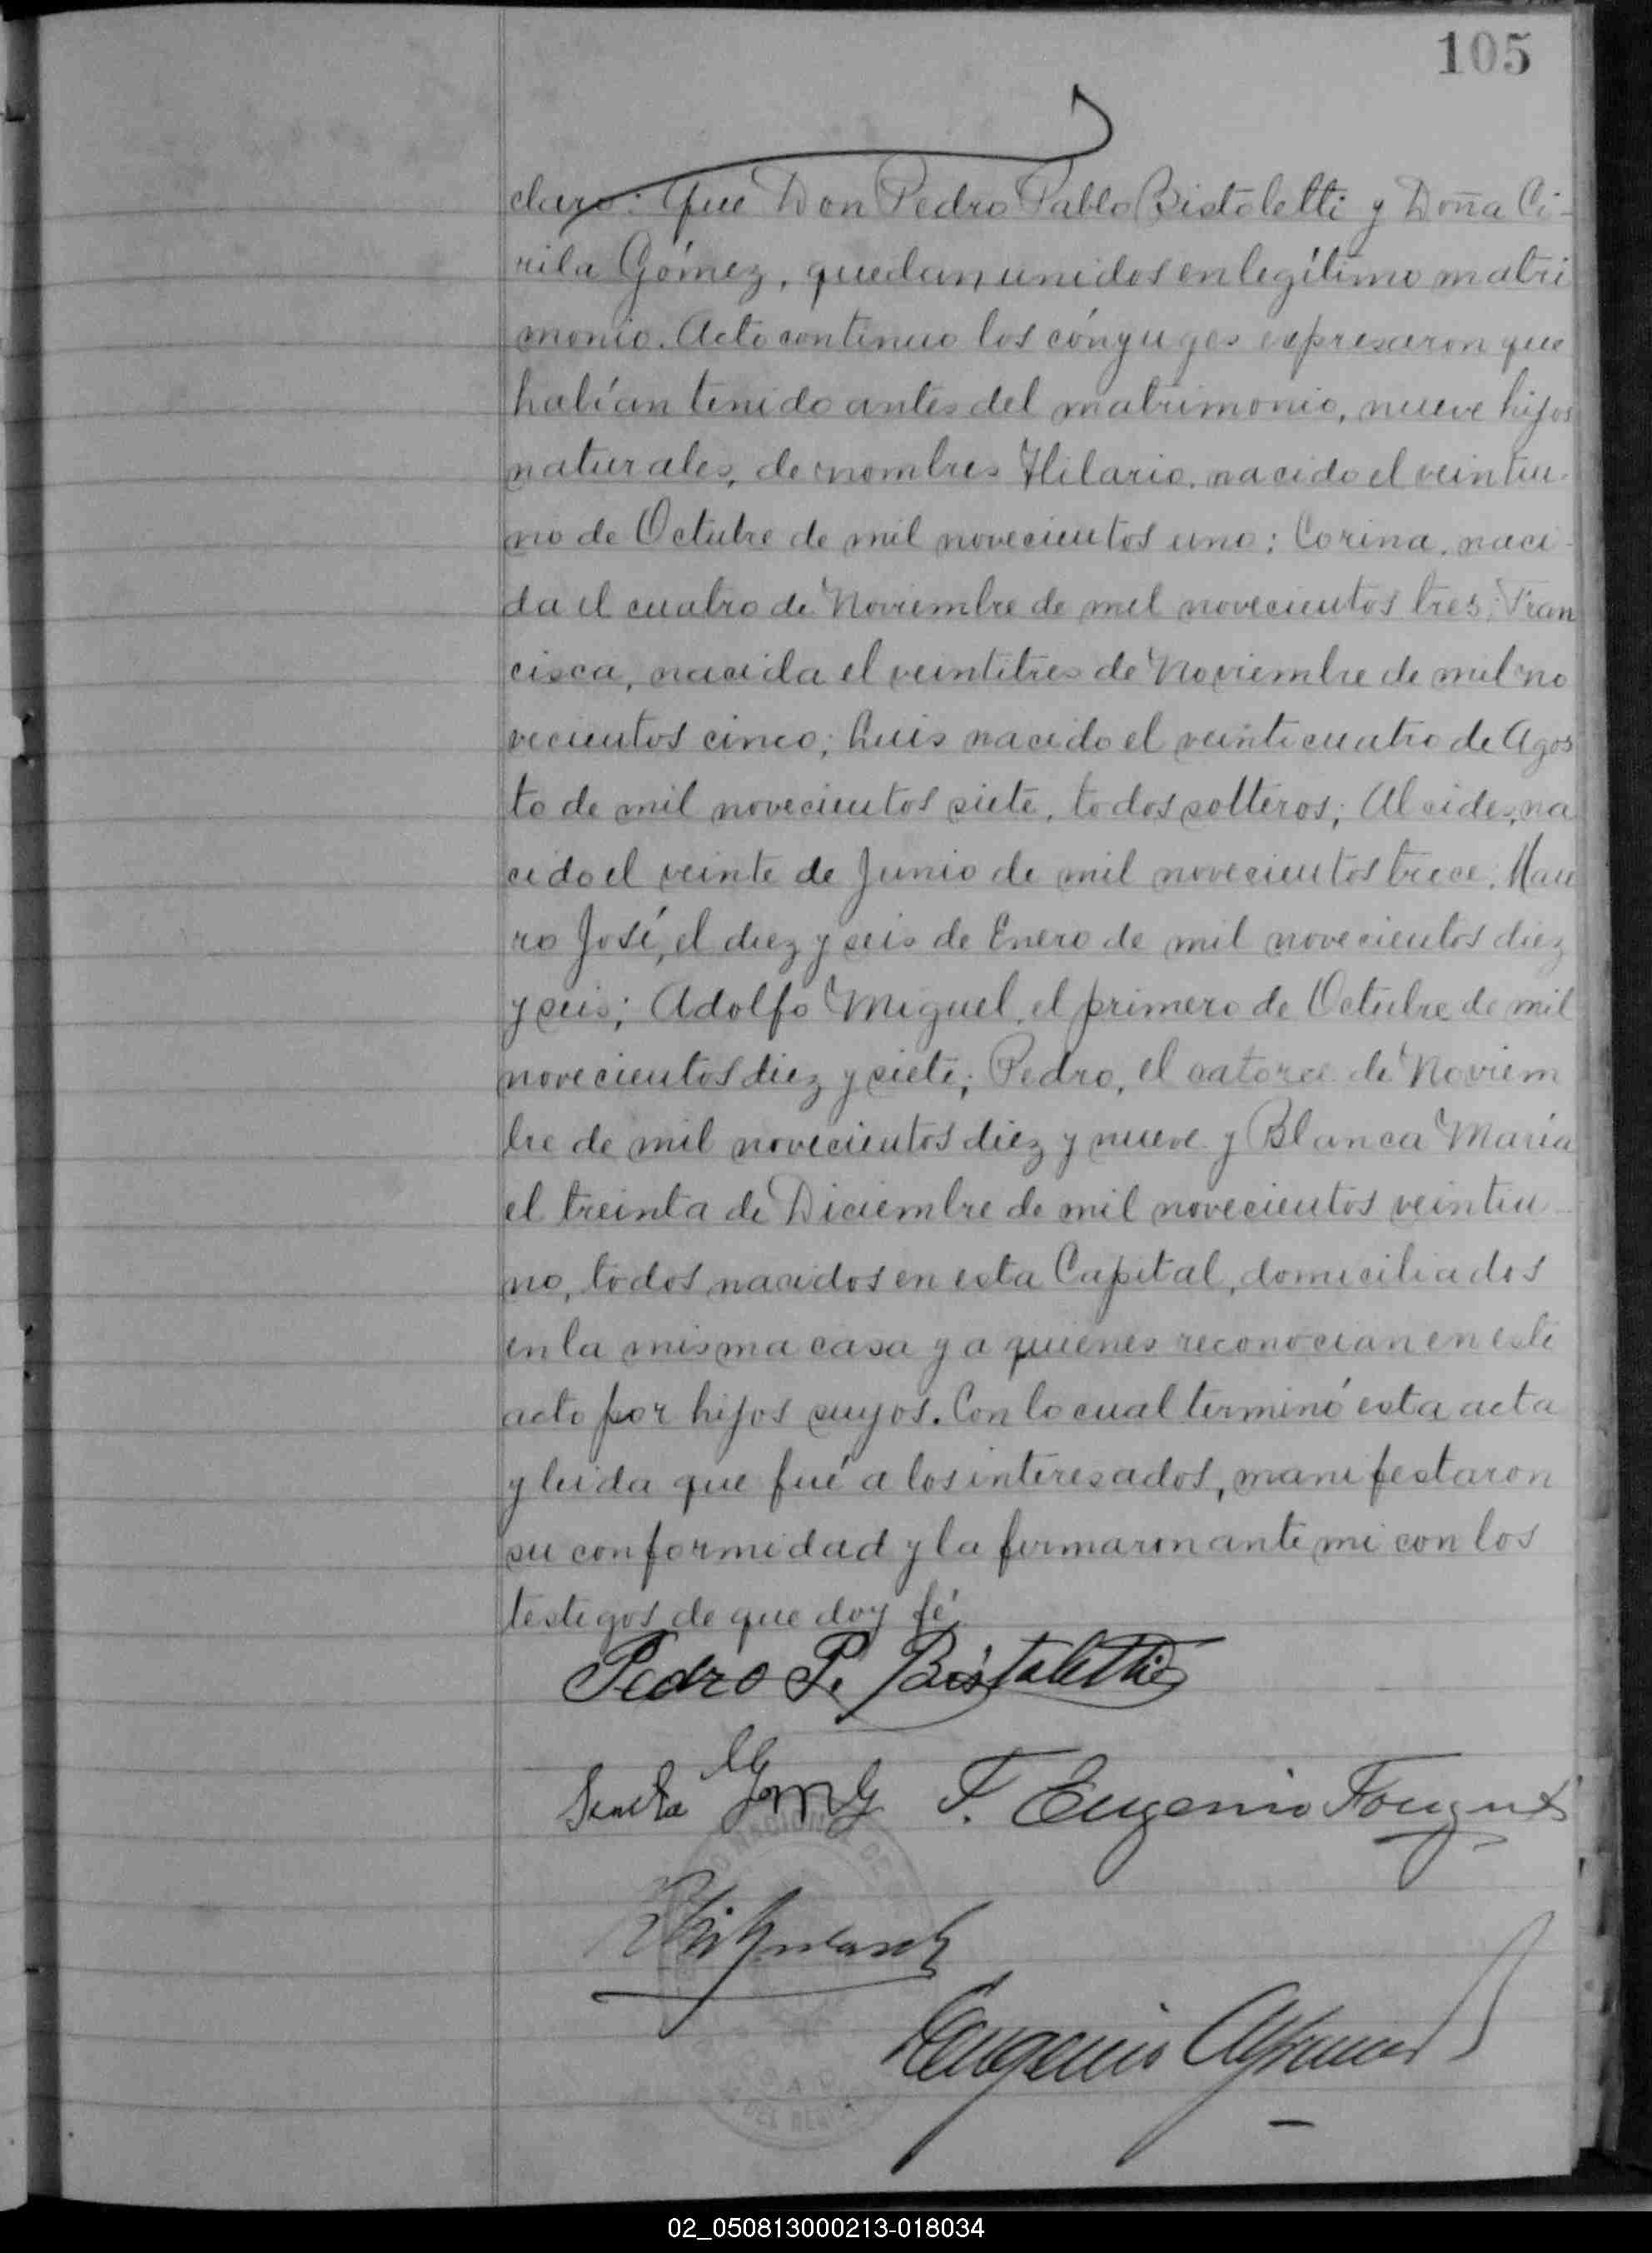 105
claro: Que Don Pedro Pablo Bistoletti y Doña Ci-
rila Gómez, quedan unidos en legítimo matri
monio. Acto continuo los cónyuges expresaron que
habían tenido antes del matrimonio, nueve hijos
naturales, de nombres Hilario, nacido el veintiu-
no de Octubre de mil novecientos uno; Corina, naci-
da el cuatro de Noviembre de mil novecientos tres; Fran
cisca, nacida el veintitres de Noviembre de mil no
vecientos cinco; Luis nacido el veinticuatro de Agos
to de mil novecientos siete, todos solteros; Alcides, na
cido el veinte de Junio de mil novecientos trece; Mau
ro José, el diez y seis de Enero de mil novecientos diez
y seis; Adolfo Miguel, el primero de Octubre de mil
novecientos diez y siete; Pedro, el catorce de Noviem
bre de mil novecientos diez y nueve y Blanca María
el treinta de Diciembre de mil novecientos veintiu-
no, todos nacidos en esta Capital, domiciliados
en la misma casa y a quienes reconocian en este
acto por hijos suyos. Con lo cual terminó esta acta
y leida que fué a los interesados, manifestaron
su conformidad y la firmaron ante mi con los
testigos de que doy fé.
Pedro P. Bistoletti
F. Eugenio
Eugenio
02_050813000213-018034